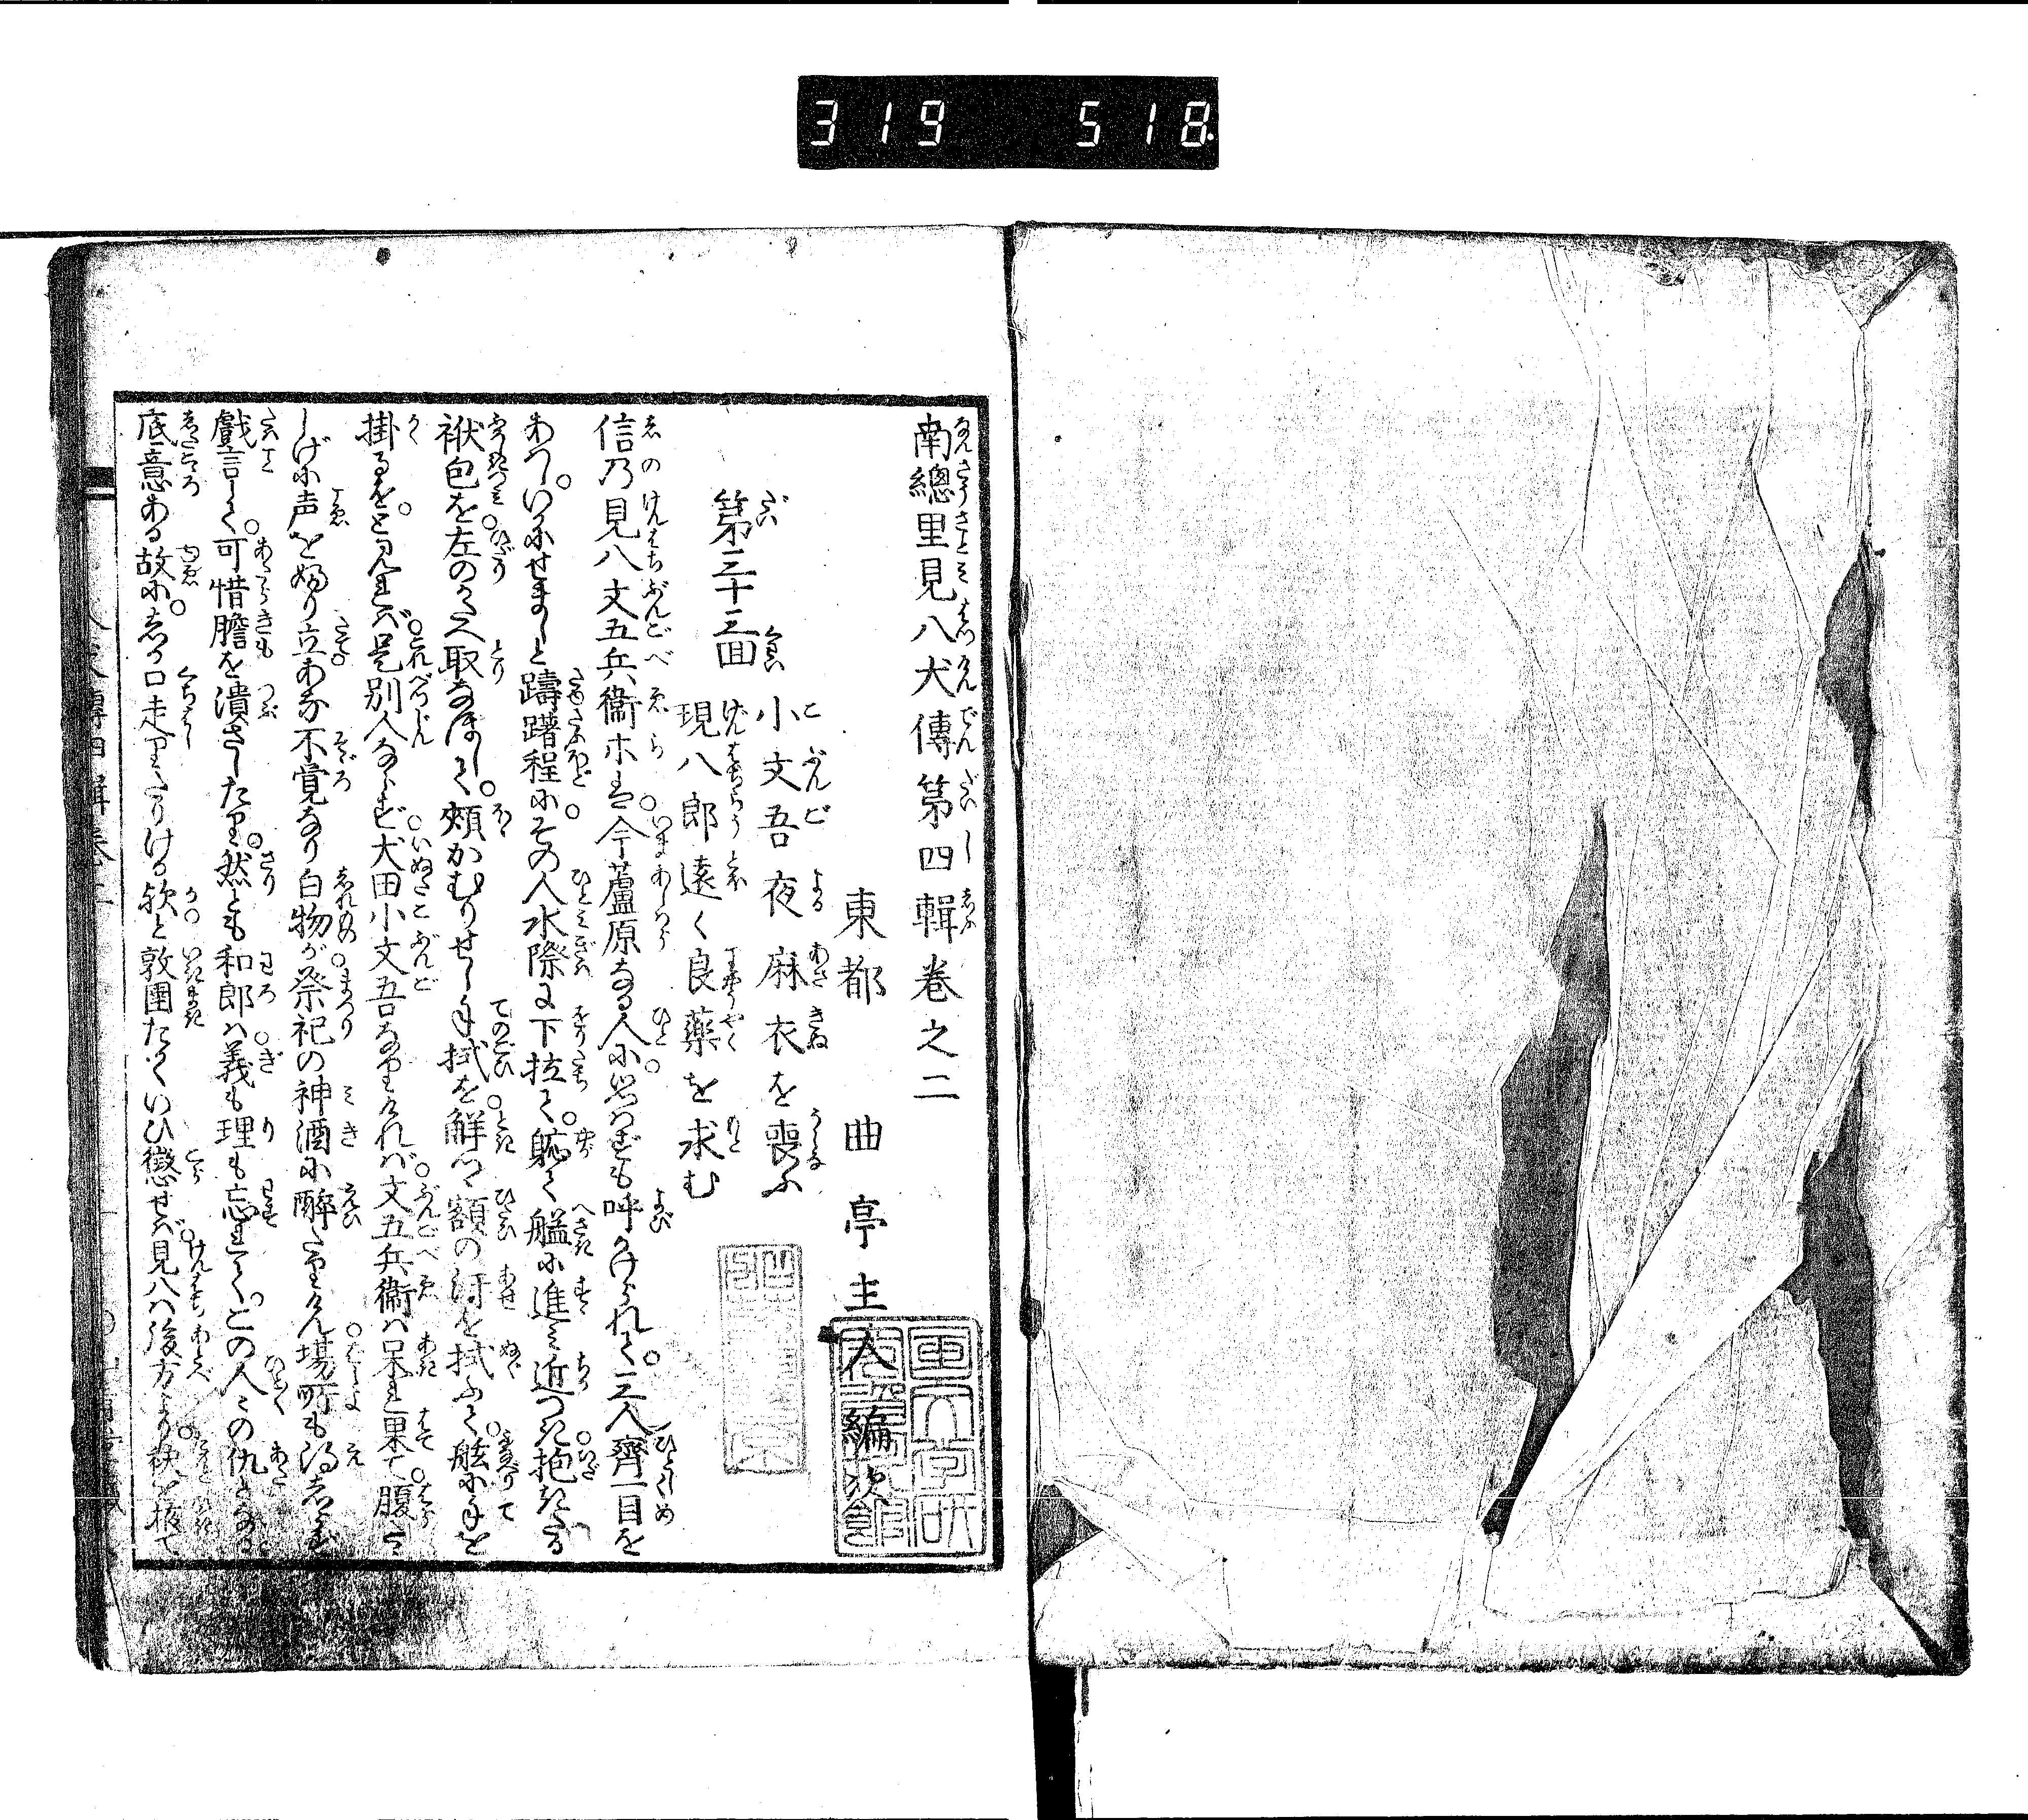 319 518.
南總里見八犬傳第四輯巻之二
東都 曲亭主人編次
第三十三回 小文吾夜麻衣を喪ふ
現八郎遠く良薬を求む
信乃見八文五兵衛ホは今蘆原なる人に思はずも呼かけられて。三人齊一目を
あはし。いかにせましと躊躇程に。その人水際に下立て。軈て艫に進み近つき抱きたる
袱包を左のかたへ取なほして。頬かむりせし手拭を觧つゝ額の汗を拭ふて。舷に手を
掛るを。と見れば是別人ならず犬田小文吾なりければ文五兵衛は呆れ果て腹は
しげに声をふり立あな不覚なり白物が祭祀の神酒に酔たりけん場所も得しらず
戯言して。可惜膽を潰さしたり。然とも和郎は義も理も忘れて。この人々の仇となる
底意ある故に。しか口走りたりける歟と敦圉たかくいひ懲せば見八は後方より袂を抜て